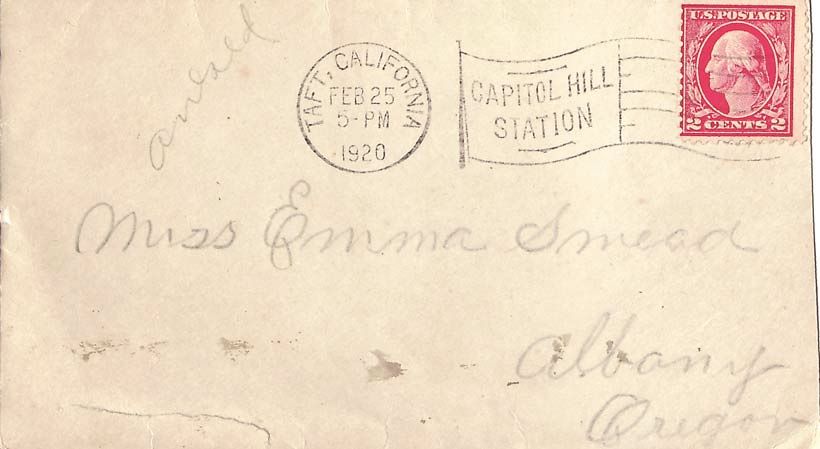 U.S. POSTAGE
2 CENTS 2
TAFT, CALIFORNIA
FEB 25
5-PM
1920
CAPITOL HILL
STATION
Miss Emma Smead
Albany
Oregon